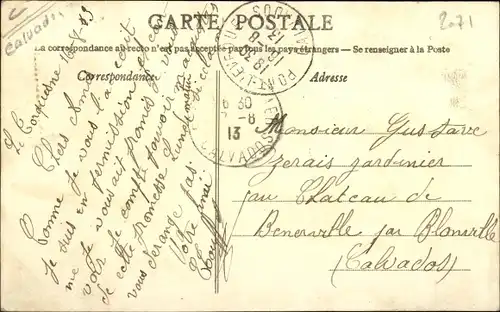 C
Calvados
2071
CARTE POSTALE
La correspondance au recto n'est pas acceptée par tous les pays étrangers. — Se renseigner à la Poste
Correspondance
Adresse
PONT-L'EVEQUE
CALVADOS
18
13
6 30
-8
13
CALVADOS
Le 16-8-13
Chers amis
Comme je vous l'ai écrit
je suis en permission et com
me je vous avait promis de vous
voir je compte pouvoir m'acquitter
de cette promesse Lundi matin si cela
vous dérange pas.
Votre ami
Monsieur Gustave
jardinier
au Chateau de
Benerville par Blonville
(Calvados)